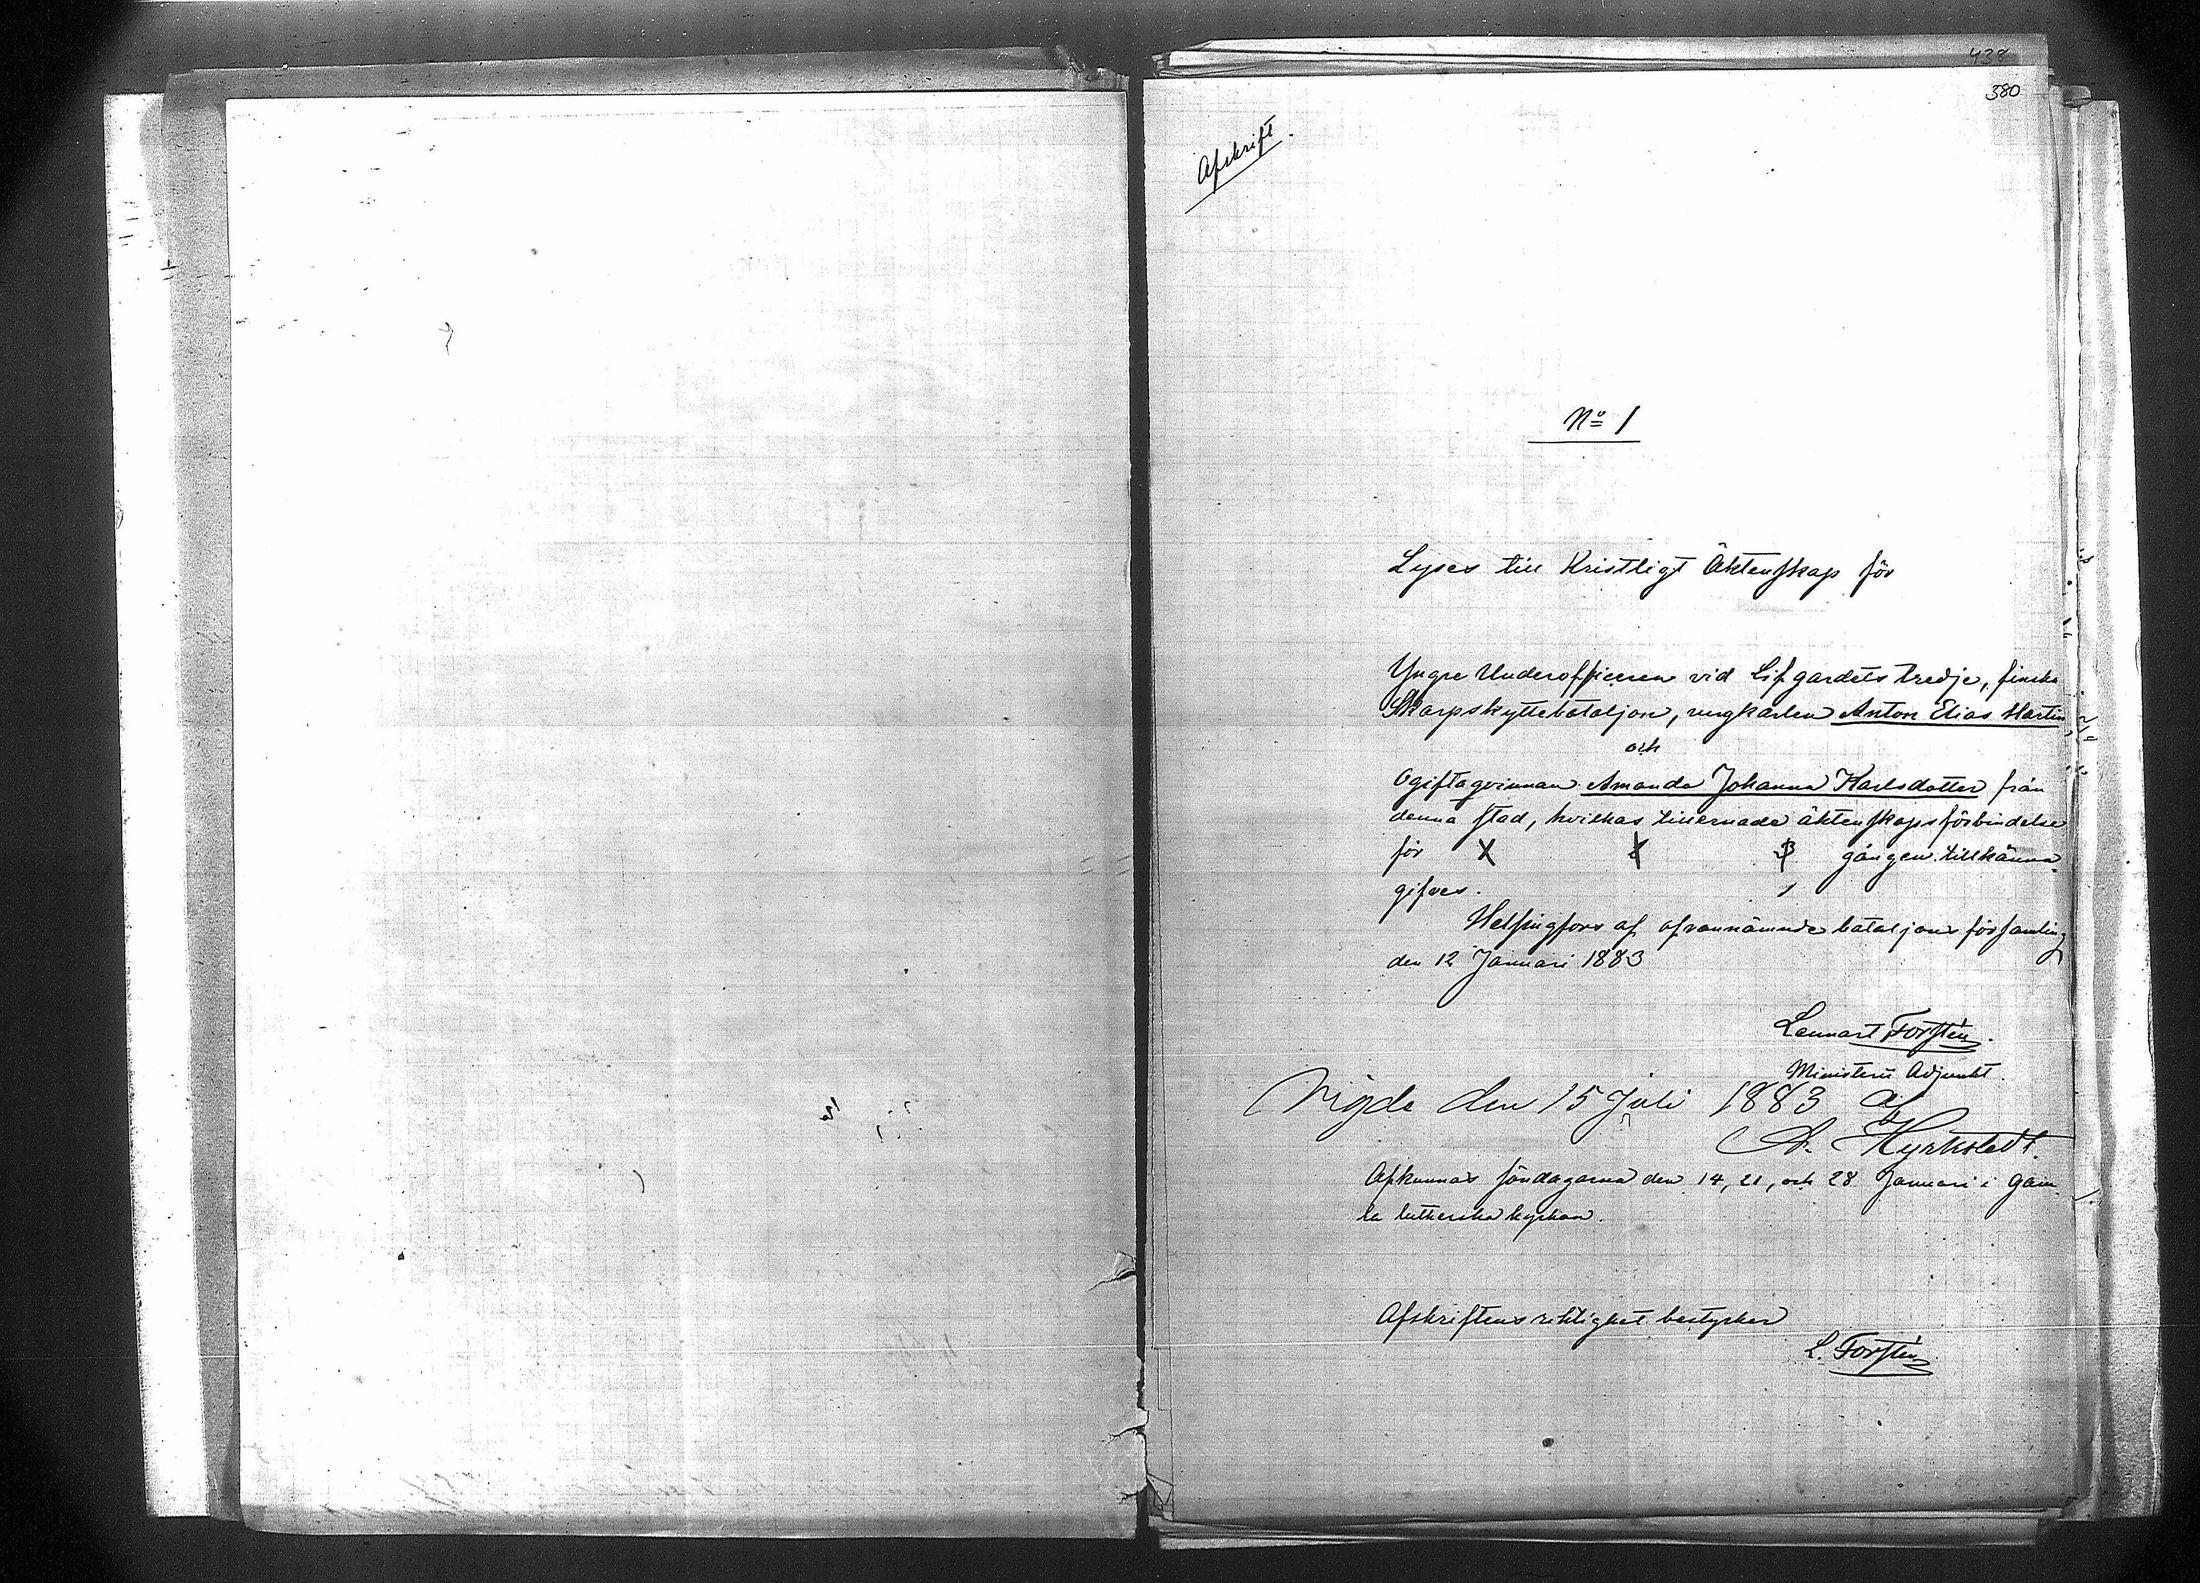 438
380
Afskrift.
No 1
Lyses till Kristligt Äktenskap för
Yngre Underofficeren vid Lifgardets tredje, finska
Skarpskyttebataljon, ungkarlen Anton Elias Martin
och
Ogiftaqvinnan Amanda Johanna Karlsdotter från
denna stad, hvilkas tillernade äktenskapsförbindelse
för 1 2 3 gången tillkänna
gifves.
Helsingfors af ofvannämnde bataljons församling
den 12 Januari 1883
Lennart Forstén.
Ministerii Adjunkt.
Vigde den 15 Juli 1883 af
A. Hyrkstedt.
Afkunnas söndagarna den 14, 21, och 28 Januari i Gam
la lutherska kyrkan.
Afskriftens riktighet bestyrker
L. Forstén